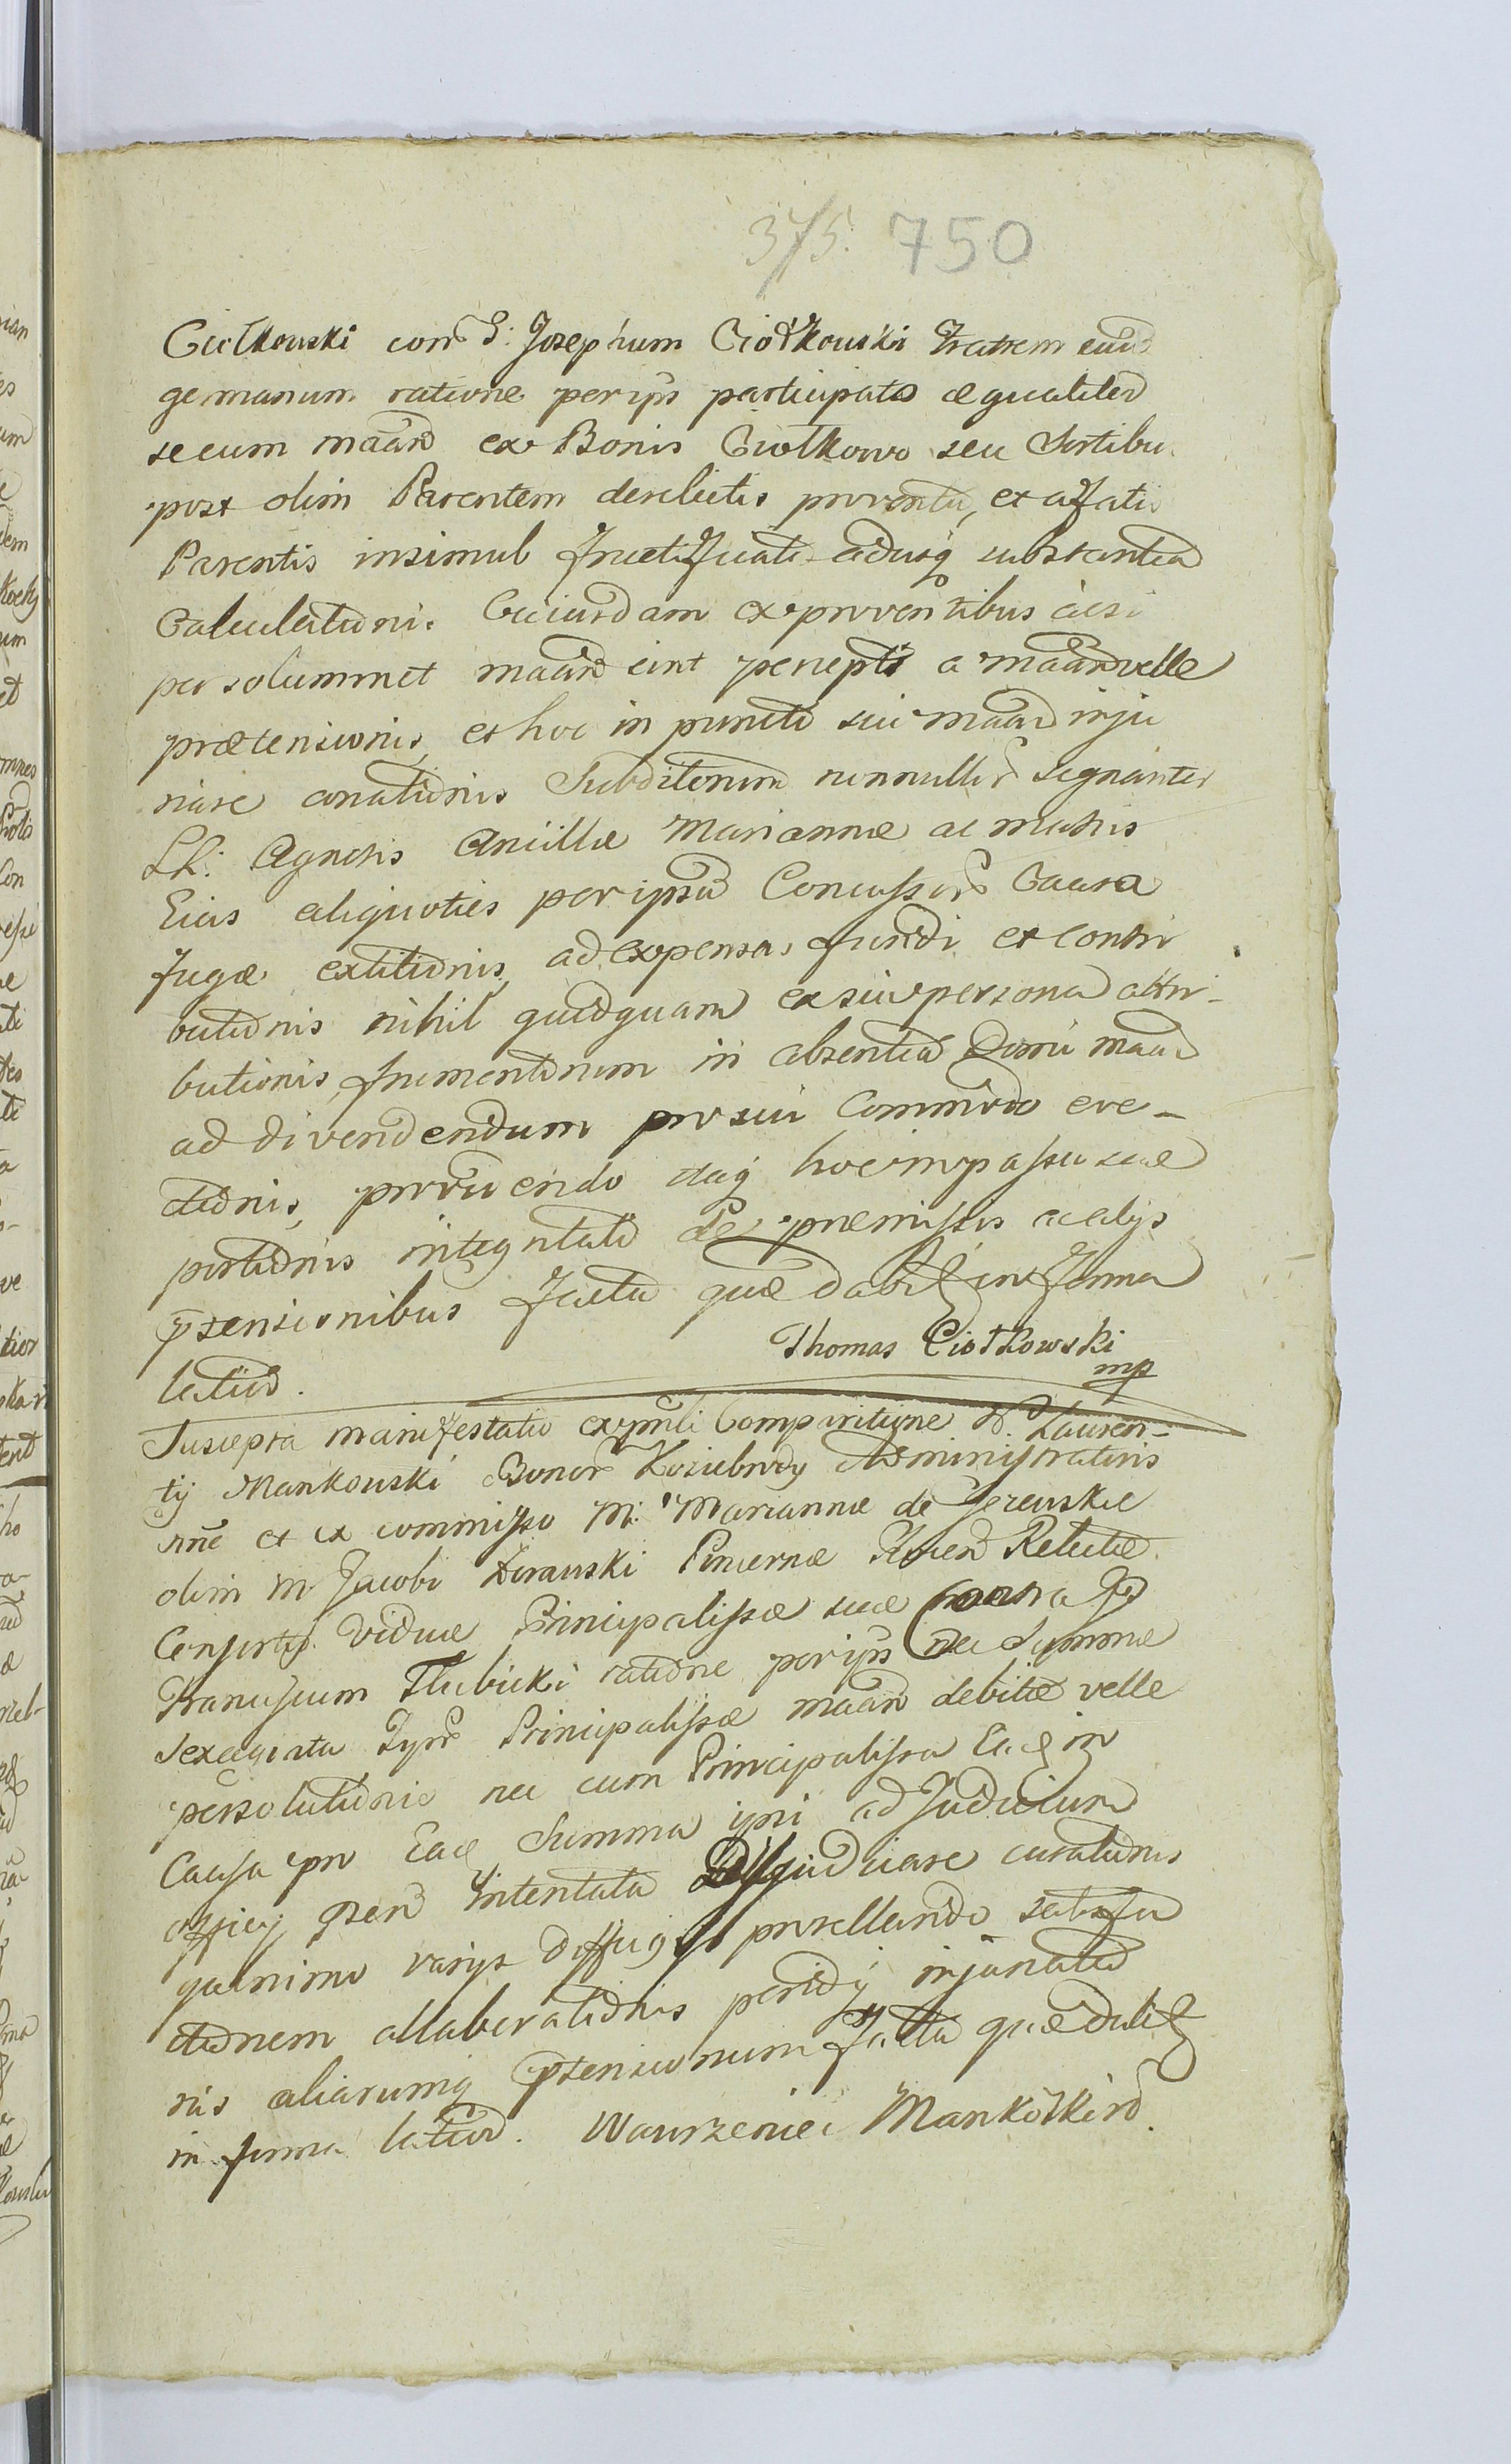 375. 750
Ciołkowski con G: Josephum Ciołkowski Fratrem eund
germanum ratione per ips participatos æqualiter
secum maãnd ex Bonis Ciołkowo seu Sortibu
post olim Parentem derelictis proventu, et a Fatis
Parentis insimul fructificati adusq substantia
Calculationis Cuiusdam ex proventibus acsi
per solummet maãnd sint percepti a maãnd velle
prætensionis, et hoc in puncto sui maãnd inju
riare conationis Subditorum nonnullor Signanter
Lh: Agnetis Ancillæ Mariannæ ac matris
Eius aliquoties per ipsũ Concussor Causa
fugæ extitionis, ad expensas fundi et contri
butionis nihil quidquam ex sui persona attri-
butionis, frumentorum in absentia Domi maãnd
ad divendendum pro sui Commodo eve-
ctionis, providendo itaq hoc in passu suæ
portionis integritati De præmissis ac alijs
ptensionibus facta quæ dabit in Forma
latius. Thomas Ciołkowski
mp
Suscepta manifestatio ex pnli Comparitione N. Lauren-
tij Mankowski Bonor Koziebrody Administratoris
nñe et ex commisso M: Mariannæ de Jezewskie
olim M Jacobi Zurawski Pincernæ Relictæ
Consortis Viduæ Principalissæ suæ Contra G
Franciscum Tłubicki ratione per ips nec Summæ
sexaginta Principalissæ maãnd debitæ velle
persolutionis nec cum Principalissa Ead in
Causa pro Ead Summa ipsi ad Judicium
officij psens Intentata Disjudicare curationis
quinimo varijs diffugijs procellando satisfa
ctionem allaborationis perinde injuriatio
nis aliarumq ptensionum facta quæ dabit
in forma latius. Wawrzeniec Mankowski